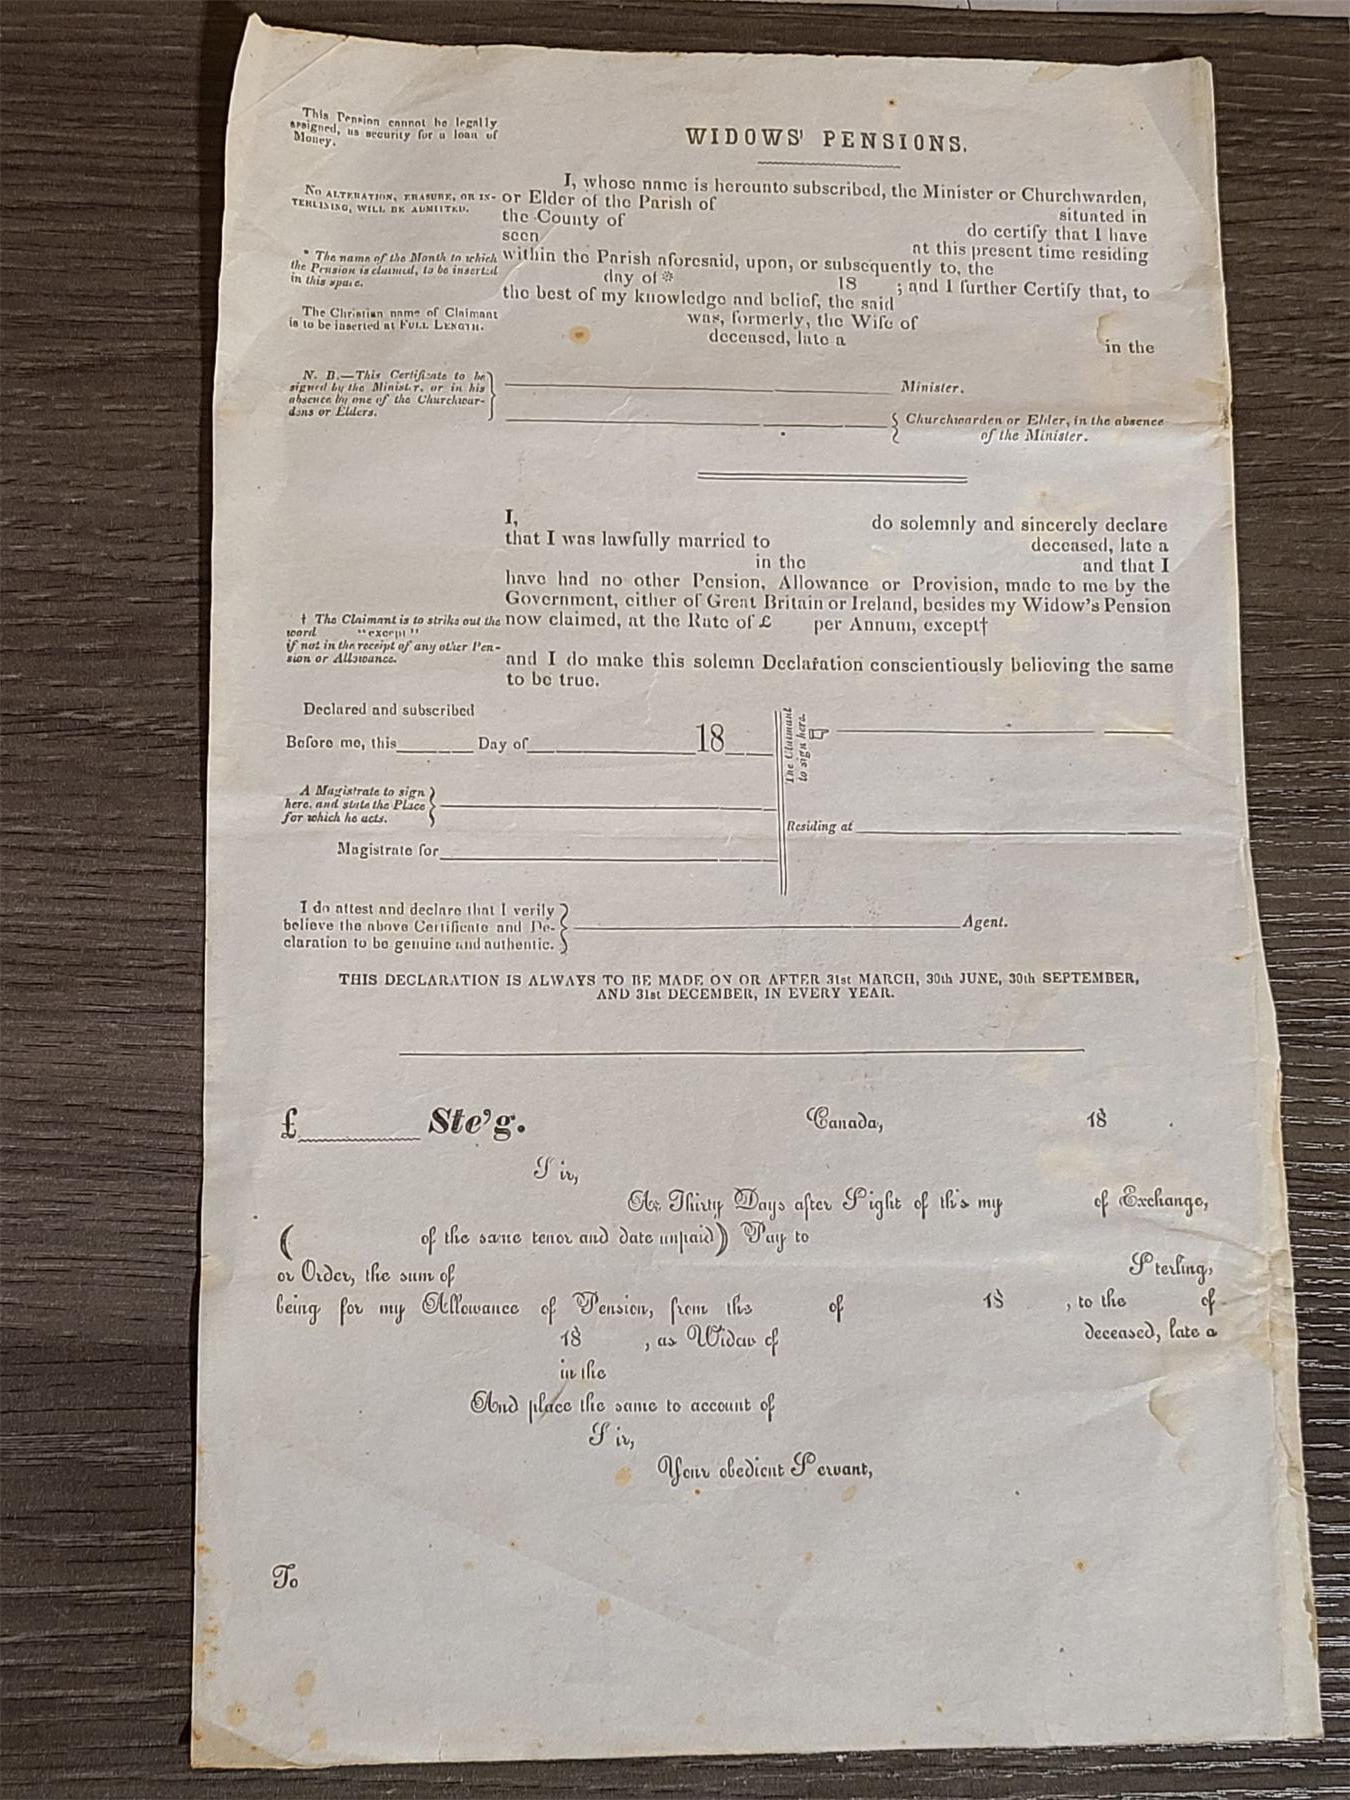 This Pension cannot be legally
assigned, as security for a loan of
Money.
WIDOWS' PENSIONS.
No ALTERATION, ERASURE, OR IN-
TERLINING, WILL BE ADMITTED.
I, whose name is hereunto subscribed, the Minister or Churchwarden,
or Elder of the Parish of situated in
the County of do certify that I have
seen at this present time residing
* The name of the Month to which
the Pension is claimed, to be inserted
in this space.
within the Parish aforesaid, upon, or subsequently to, the
day of * 18 ; and I further Certify that, to
the best of my knowledge and belief, the said
The Christian name of Claimant
is to be inserted at FULL LENGTH.
was, formerly, the Wife of
deceased, late a in the
N. B.—This Certificate to be
signed by the Minister, or in his
absence by one of the Churchwar-
dens or Elders.
Minister.
Churchwarden or Elder, in the absence
of the Minister.
I, do solemnly and sincerely declare
that I was lawfully married to deceased, late a
in the and that I
have had no other Pension, Allowance or Provision, made to me by the
Government, either of Great Britain or Ireland, besides my Widow's Pension
now claimed, at the Rate of £ per Annum, except†
† The Claimant is to strike out the
word "except"
if not in the receipt of any other Pen-
sion or Allowance.
and I do make this solemn Declaration conscientiously believing the same
to be true.
Declared and subscribed
Before me, this Day of 18
The Claimant
to sign here.
☞
A Magistrate to sign
here, and state the Place
for which he acts.
Residing at
Magistrate for
I do attest and declare that I verily
believe the above Certificate and De-
claration to be genuine and authentic.
Agent.
THIS DECLARATION IS ALWAYS TO BE MADE ON OR AFTER 31st MARCH, 30th JUNE, 30th SEPTEMBER,
AND 31st DECEMBER, IN EVERY YEAR.
£ Ste'g. Canada, 18
Sir,
At Thirty Days after Sight of this my of Exchange,
( of the same tenor and date unpaid) Pay to
or Order, the sum of Sterling,
being for my Allowance of Pension, from the of 18 , to the of
18 , as Widow of deceased, late a
in the
And place the same to account of
Sir,
Your obedient Servant,
To